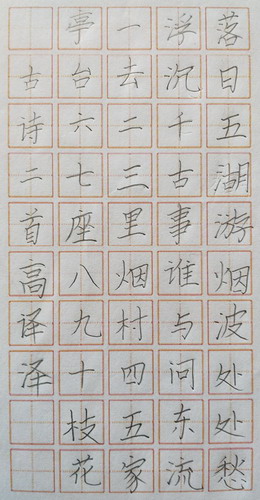 落日五湖游烟波处处愁
浮沉千古事谁与问东流
一去二三里烟村四五家
亭台六七座八九十枝花
古诗二首高译泽